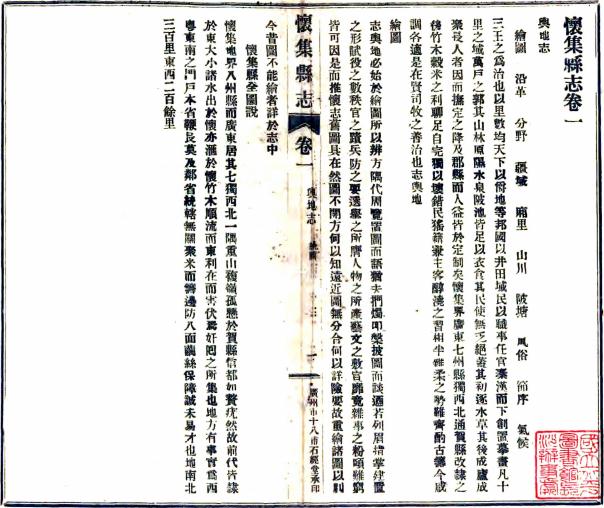 懷集縣志卷一
輿地志
繪圖 沿革 分野 疆域 廂里 山川 陂塘 風俗 節序 氣候
三王之為治也以里數均天下以爵地等邦國以井田域民以職事任官秦漢而下創置摹畫凡十
里之域萬戶之郭其山林原隰水泉陂池皆足以衣食其民使無乏絕蓋其初逐水草其後成廬成
聚長人者因而撫定之降及郡縣而人益皆於定制矣懷集界廣東七州縣獨西北通賀縣改隸之
後竹木穀米之利聊足自完獨以壤錯民猺籍兼主客醇澆之習相半雖柔之勢難齊酌古鑑今咸
調各適是在賢司牧之善治也志輿地
繪圖
志輿地必始於繪圖所以辨方隅代周覽置圖而語猶夫捫燭叩槃披圖而談迺若列眉指掌建置
之形賦役之數秩官之蹟兵防之要選舉之所膺人物之所產藝文之數官師竟雜事之粉頤雖窮
皆可因是而推懷志舊圖具在然圖不開方何以知遠近圖無分合何以詳險要故重繪諸圖以則
懷集縣志 卷一 輿地志 繪圖 二
廣州市十八甫石經堂承印
今昔圖不能繪者詳於志中
懷集縣全圖說
懷集地界八州縣而廣東居其七獨西北一隅重山複嶺孤懸於賀縣信都如贅疣然故前代皆隸
於東大小諸水出於懷亦滙於懷竹木順流而東利在而害伏焉奸宄之所集也地方有事實為西
粵東南之門戶本省鞭長莫及鄰省統轄無關聚米而籌邊防八面繭絲保障誠未易才也地南北
三百里東西二百餘里